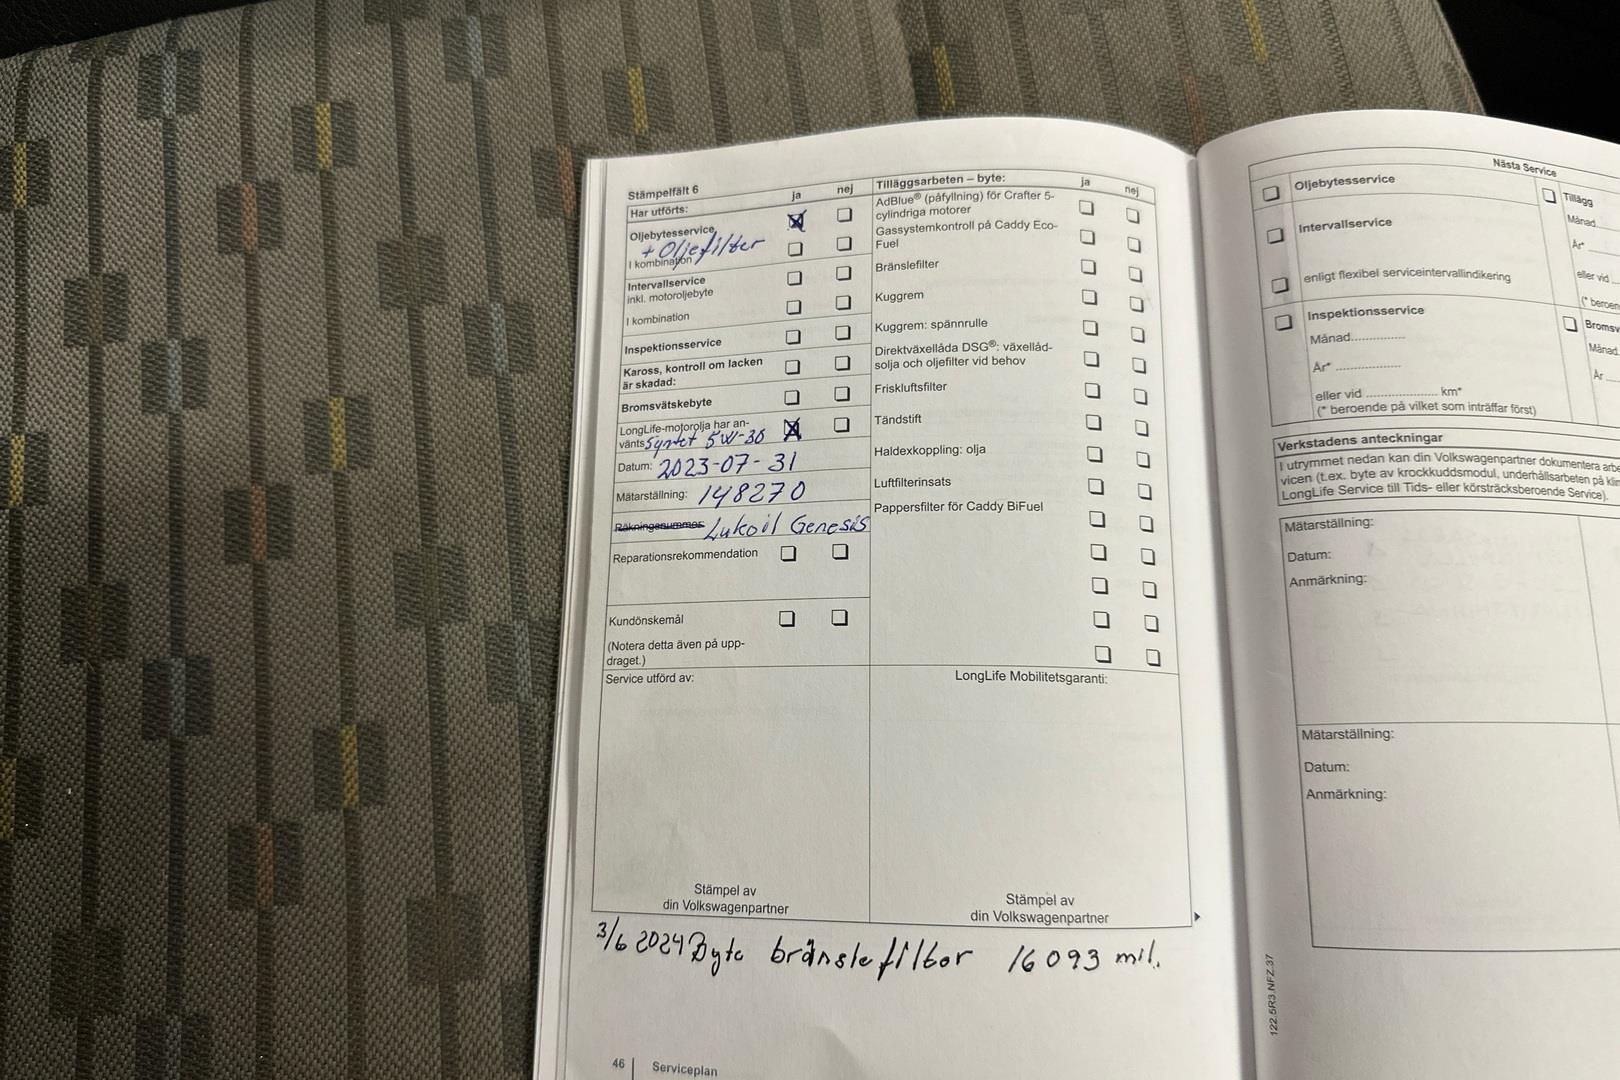 Stämpelfält 6
Har utförts: ja nej
Oljebytesservice
+ Oljefilter
I kombination
Intervallservice
inkl. motoroljebyte
I kombination
Inspektionsservice
Kaross, kontroll om lacken
är skadad:
Bromsvätskebyte
LongLife-motorolja har an-
vänts Syntet 5W-30
Datum: 2023-07-31
Mätarställning: 148270
Räkningsnummer Lukoil Genesis
Reparationsrekommendation
Kundönskemål
(Notera detta även på upp-
draget.)
Service utförd av:
Stämpel av
din Volkswagenpartner
Tilläggsarbeten – byte: ja nej
AdBlue® (påfyllning) för Crafter 5-
cylindriga motorer
Gassystemkontroll på Caddy Eco-
Fuel
Bränslefilter
Kuggrem
Kuggrem: spännrulle
Direktväxellåda DSG®: växellåd-
solja och oljefilter vid behov
Friskluftsfilter
Tändstift
Haldexkoppling: olja
Luftfilterinsats
Pappersfilter för Caddy BiFuel
LongLife Mobilitetsgaranti:
Stämpel av
din Volkswagenpartner
3/6 2024 Byte bränslefilter 16093 mil.
46 Serviceplan
Nästa Service
Oljebytesservice
Intervallservice
enligt flexibel serviceintervallindikering
Inspektionsservice
Månad...............
År* ..................
eller vid .................... km*
(* beroende på vilket som inträffar först)
Tillägg
Månad
År*
eller vid ...
(* beroen
Bromsv
Månad.
År ....
Verkstadens anteckningar
I utrymmet nedan kan din Volkswagenpartner dokumentera arbe
vicen (t.ex. byte av krockkuddsmodul, underhållsarbeten på kli
LongLife Service till Tids- eller körsträcksberoende Service).
Mätarställning:
Datum:
Anmärkning:
Mätarställning:
Datum:
Anmärkning:
122.5R3.NFZ.37